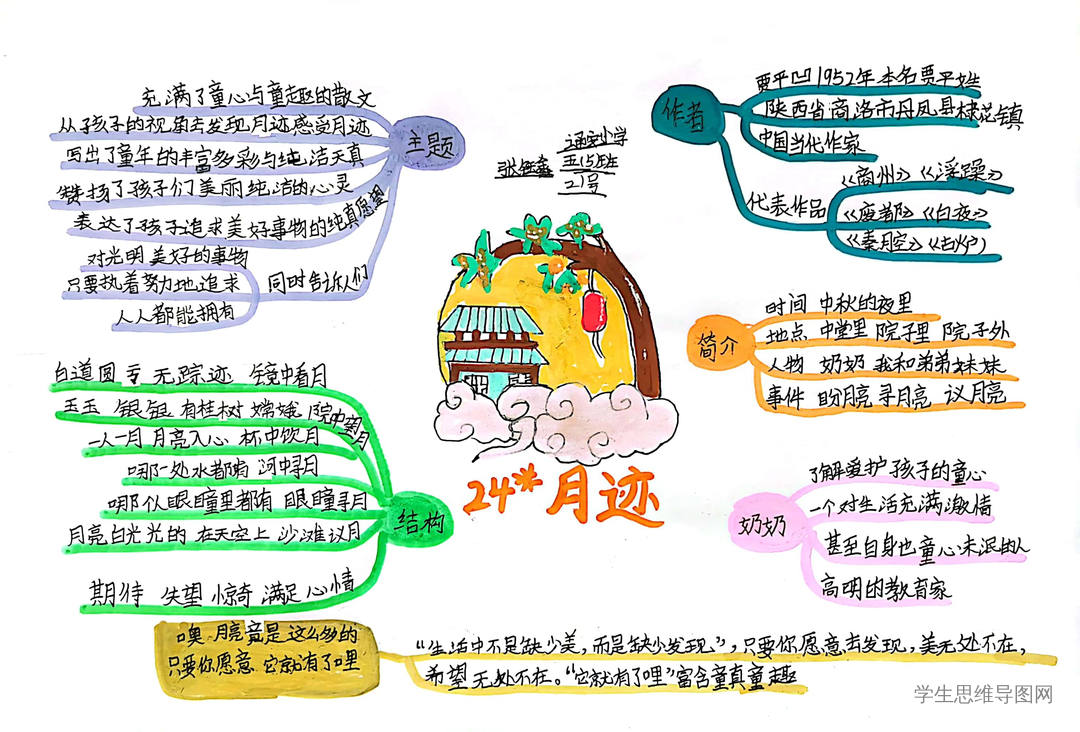 充满了童心与童趣的散文
从孩子的视角去发现月迹感受月迹
写出了童年的丰富多彩与纯洁天真
赞扬了孩子们美丽纯洁的心灵
表达了孩子追求美好事物的纯真愿望
对光明 美好的事物
只要执着努力地追求
人人都能拥有
同时告诉人们
主题
小学
五(5)班
21号
24*月迹
作者
贾平凹 1952年 本名贾平娃
陕西省商洛市丹凤县棣花镇
中国当代作家
代表作品
《商州》《浮躁》
《废都》《白夜》
《秦月空》《古炉》
简介
时间 中秋的夜里
地点 中堂里 院子里 院子外
人物 奶奶 我和弟弟妹妹
事件 盼月亮 寻月亮 议月亮
奶奶
了解爱护孩子的童心
一个对生活充满激情
甚至自身也童心未泯的人
高明的教育家
结构
白道 圆 亏 无踪迹 镜中看月
玉玉 银银 有桂树 嫦娥 院中望月
一人一月 月亮入心 杯中饮月
哪一处水都有 河中寻月
哪个眼瞳里都有 眼瞳寻月
月亮白光光的 在天空上 沙滩议月
期待 失望 惊奇 满足 心情
噢 月亮竟是这么多的
只要你愿意 它就有了哩
“生活中不是缺少美,而是缺少发现”,只要你愿意去发现,美无处不在,
希望无处不在。“它就有了哩”富含童真童趣
学生思维导图网